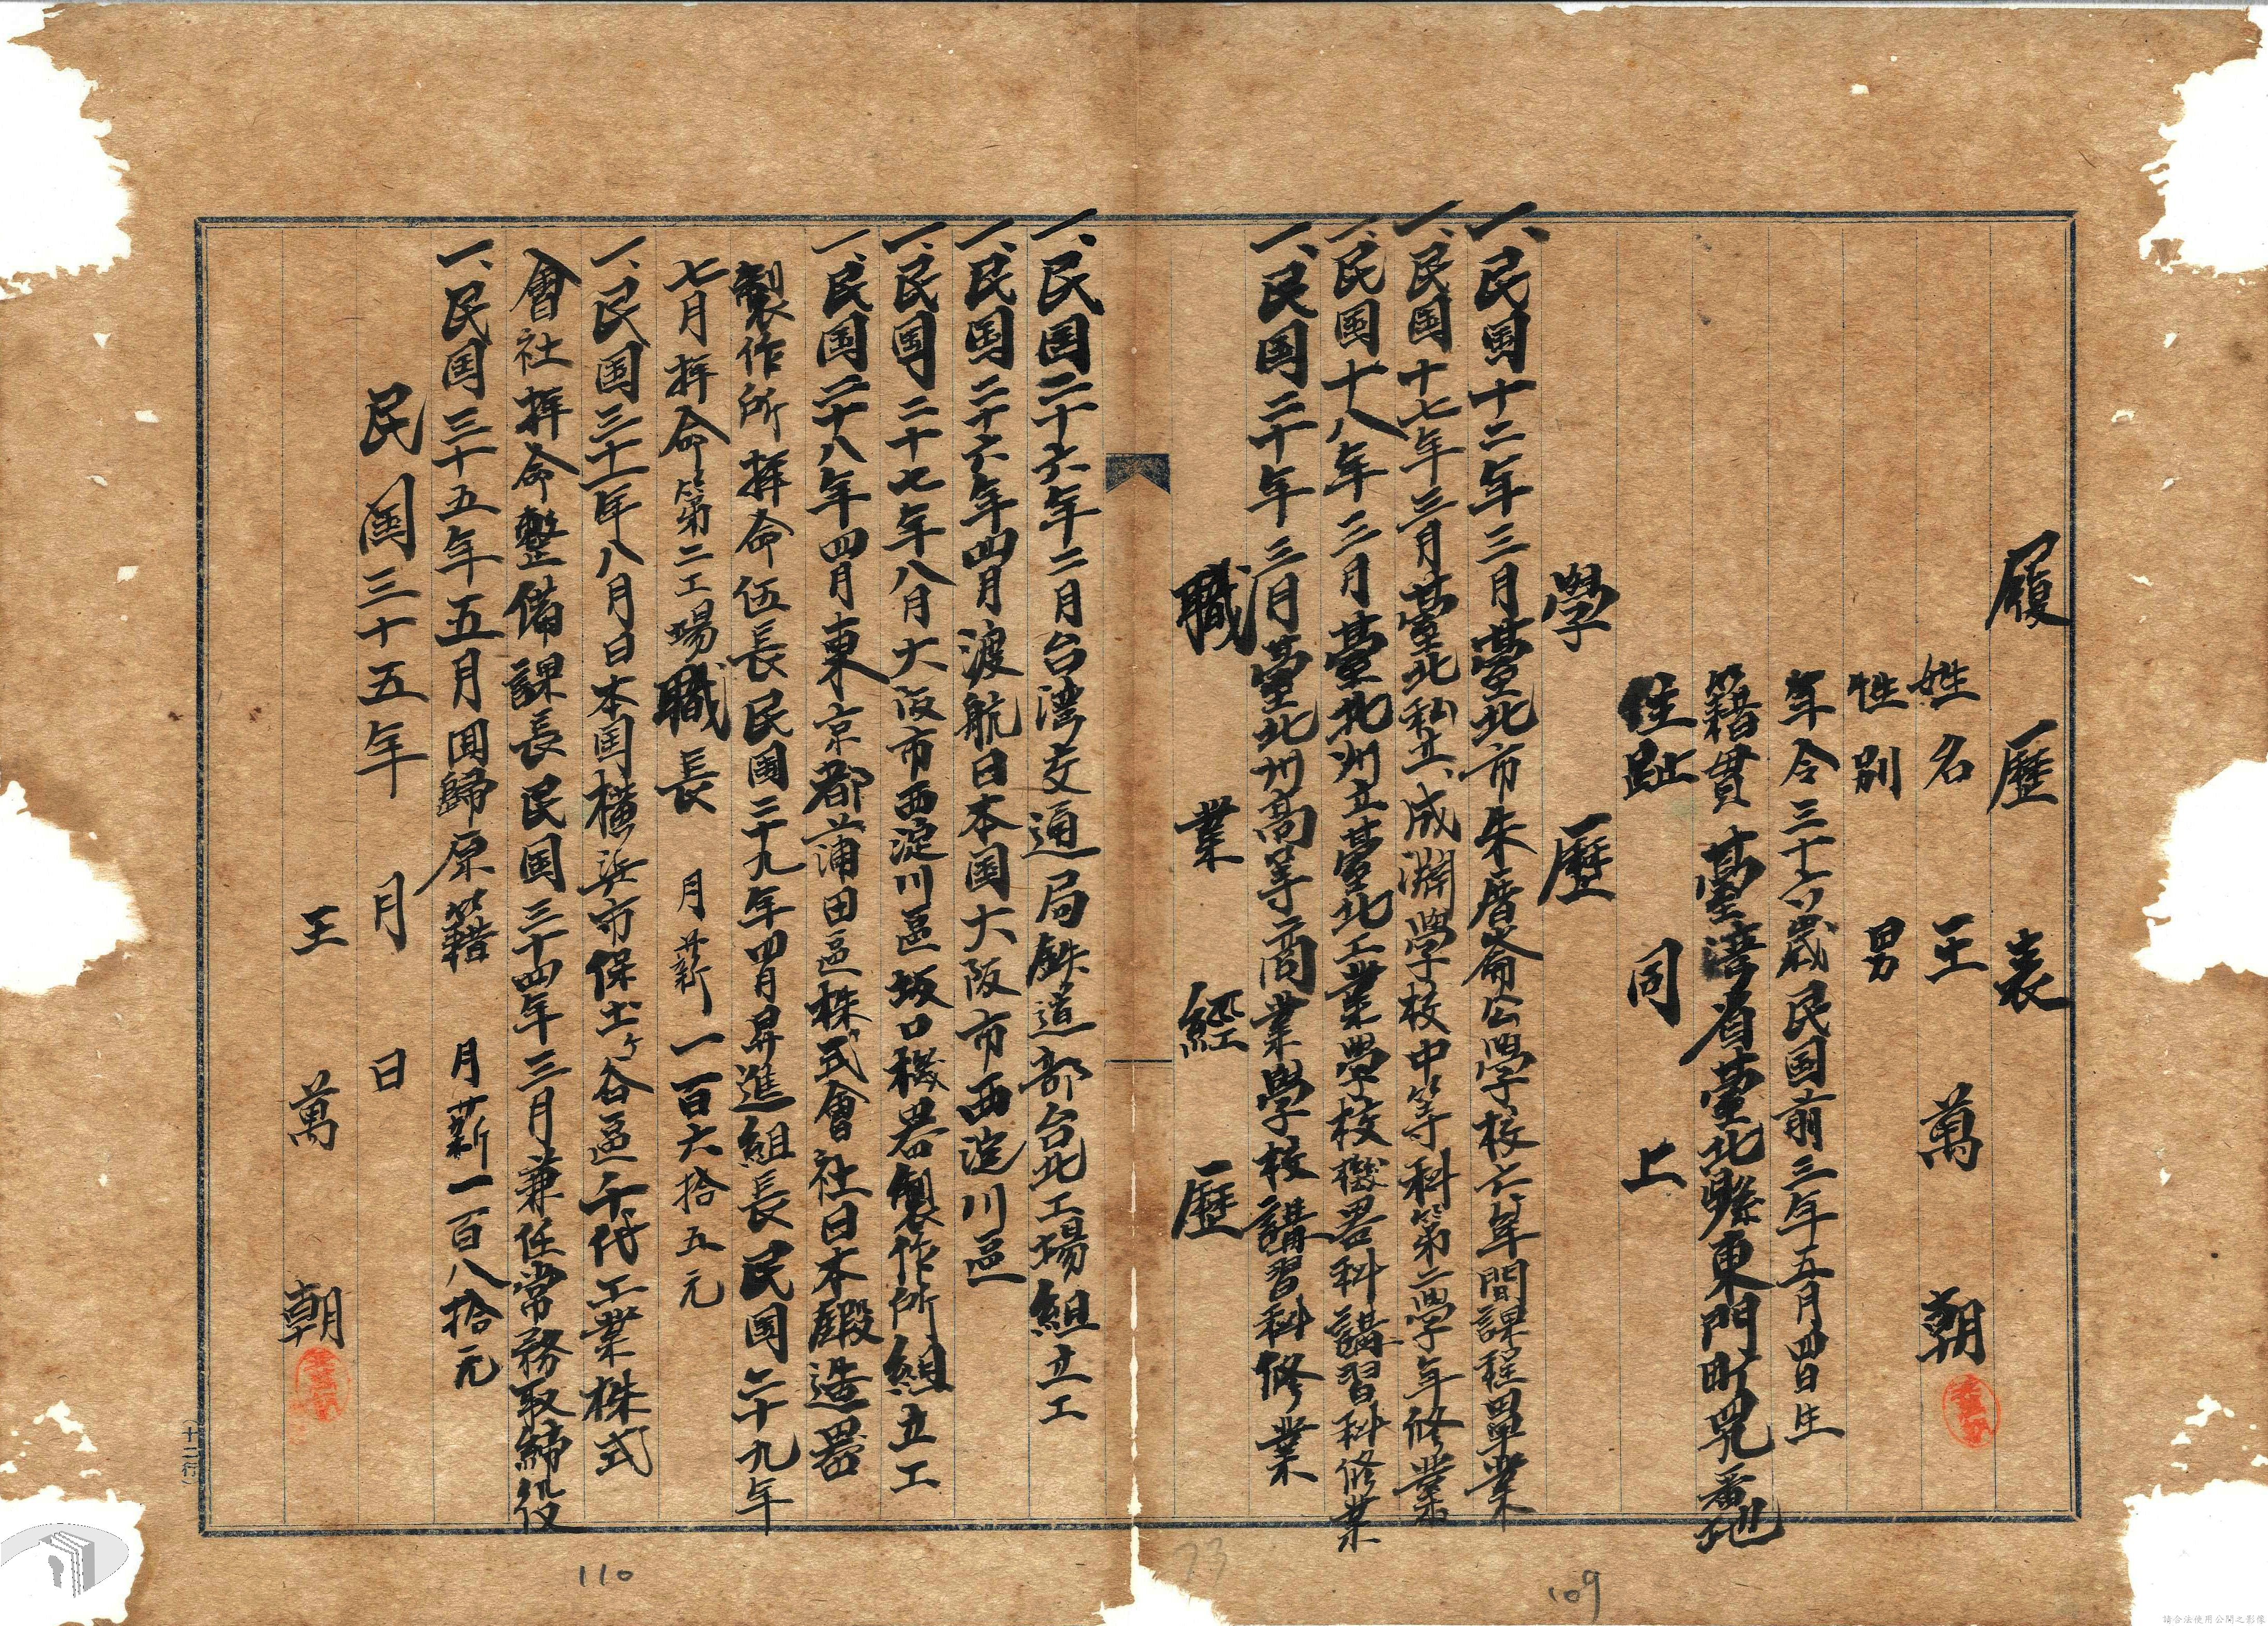 履歷表
姓名 王萬朝
性別 男
年令 三十六歲民国前三年五月四日生
籍貫 臺湾省臺北縣東門町 番地
住趾 同上
學歷
一、民国十二年三月臺北市朱厝崙公學校六年間課程畢業
一、民国十七年三月臺北私立成淵學校中等科第二學年修業
一、民国十八年三月臺北州立臺北工業學校機器科講習科修業
一、民国二十年三月臺北州高等商業學校講習科修業
職業經歷
一、民国二十六年二月台湾交通局鉄道部台北工場組立工
一、民国二十六年四月渡航日本国大阪市西淀川區
一、民国二十七年八月大阪市西淀川區坂口機器製作所組立工
一、民国二十八年四月東京都蒲田區株式會社日本鍛造器
製作所拝命伍長民国二十九年四月昇進組長民国二十九年
七月拝命第二工場職長 月薪一百六拾五元
一、民国三十一年八月日本国横浜市保土ヶ谷區千代工業株式
會社拝命整備課長民国三十四年三月兼任常務取締役
一、民国三十五年五月囬歸原籍 月薪一百八拾元
民国三十五年 月 日
王萬朝
(十二行)
110
73
109
請合法使用公開之影像